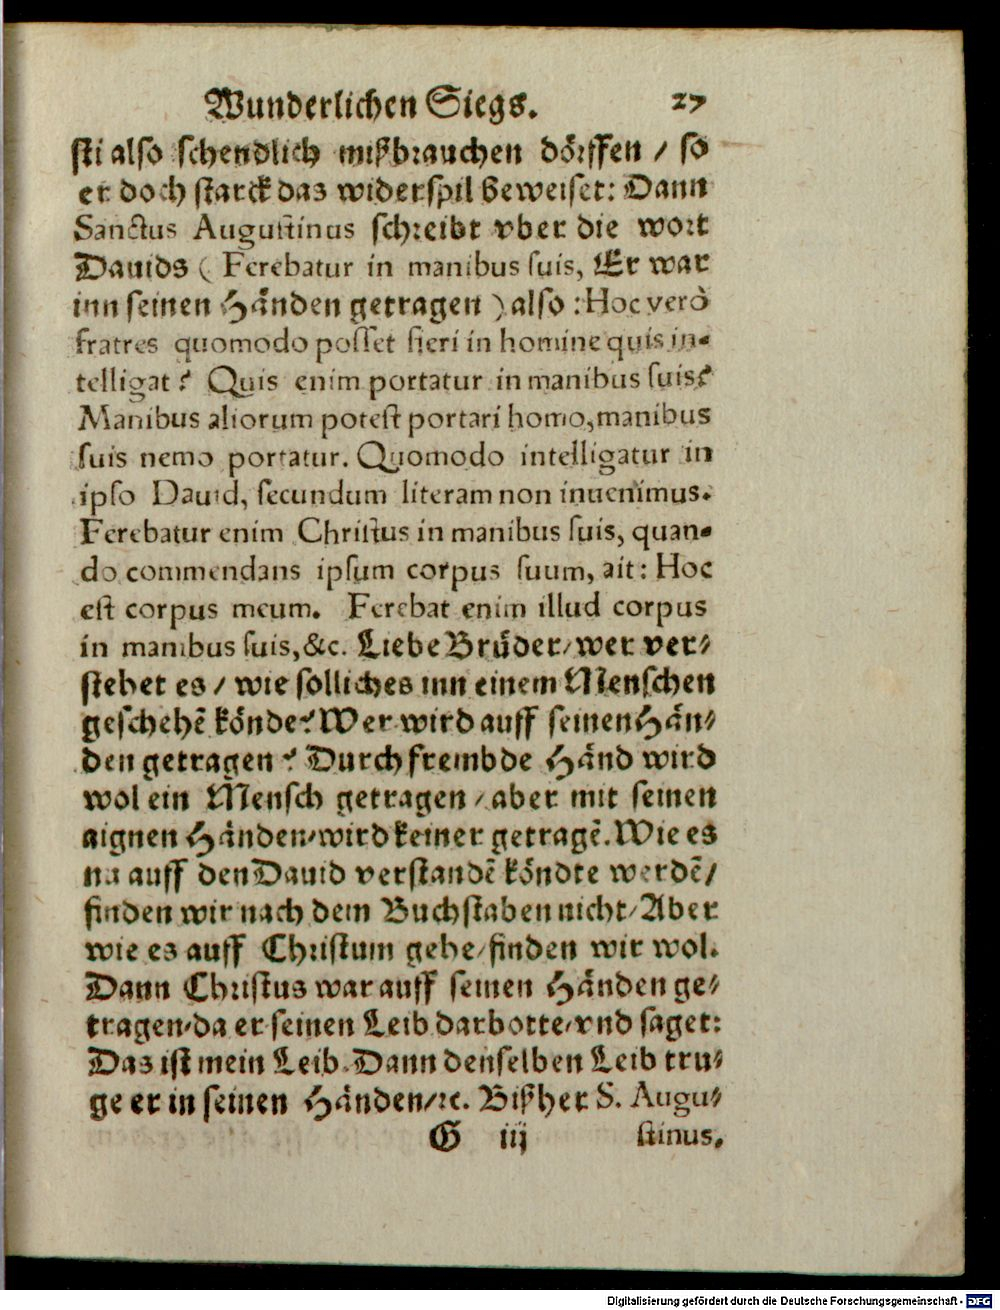 Wunderlichen Siegs. 27
sti also schendlich mißbrauchen dörffen / so
er doch starck das widerspil beweiset: Dann
Sanctus Augustinus schreibt vber die wort
Dauids ( Ferebatur in manibus suis, Er war
inn seinen Händen getragen ) also : Hoc verò
fratres quomodo posset fieri in homine quis in-
telligat? Quis enim portatur in manibus suis?
Manibus aliorum potest portari homo, manibus
suis nemo portatur. Quomodo intelligatur in
ipso Dauid, secundum literam non inuenimus.
Ferebatur enim Christus in manibus suis, quan-
do commendans ipsum corpus suum, ait: Hoc
est corpus meum. Ferebat enim illud corpus
in manibus suis, &c. Liebe Brüder / wer ver-
stehet es / wie solliches inn einem Menschen
geschehẽ könde? Wer wird auff seinen Hän-
den getragen? Durch frembde Händ wird
wol ein Mensch getragen / aber mit seinen
aignen Händen / wird keiner getragẽ. Wie es
nu auff den Dauid verstandẽ köndte werdẽ /
finden wir nach dem Buchstaben nicht / Aber
wie es auff Christum gehe / finden wir wol.
Dann Christus war auff seinen Händen ge-
tragen / da er seinen Leib darbotte / vnd saget:
Das ist mein Leib. Dann denselben Leib tru-
ge er in seinen Händen / ꝛc. Bißher S. Augu-
G iij stinus.
Digitalisierung gefördert durch die Deutsche Forschungsgemeinschaft - DFG